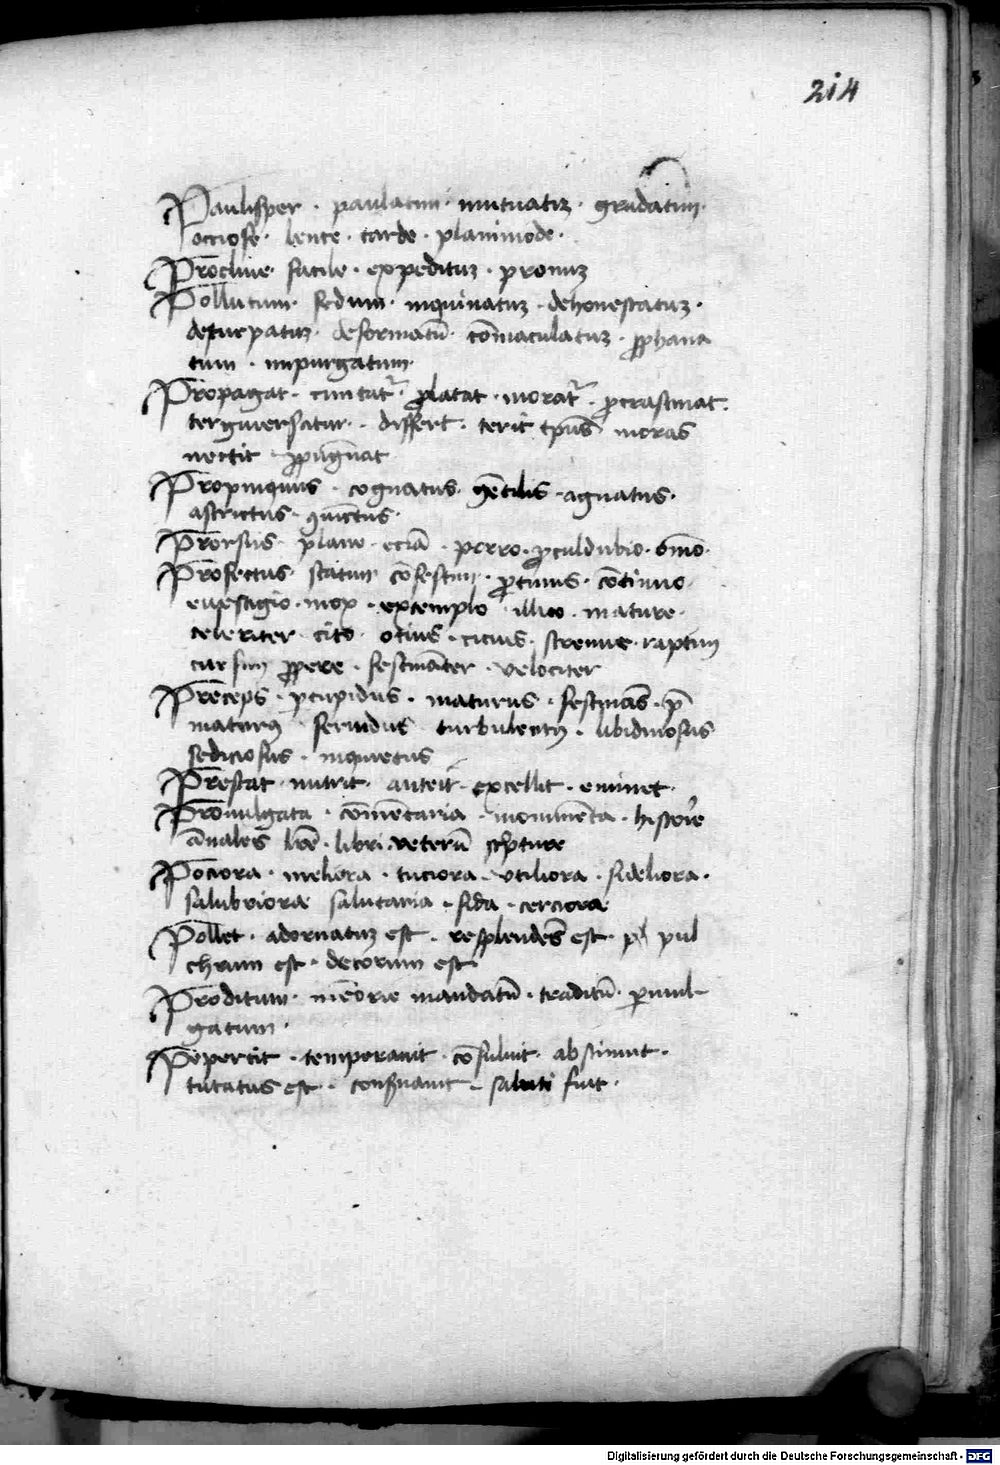 214
Paulisper · paulatim · mutuatiꝫ · gradatim ·
occiose · lente · tarde · planimode ·
Procliue · facile · expedituꝫ · pronuꝫ
Pollutum · fedum · inquinatuꝫ · dehonestatuꝫ ·
deturpatuꝫ · deformatū · cōmaculatuꝫ · ꝓphana
tum · impurgatum ·
Propagat · cunctat᷑ · ꝓlatat · morat᷑ · ꝓcrastinat ·
terguiersatur · differt · terit tp̄us moras
nectit · ꝓpugnat
Propinquus · cognatus · gētilis · agnatus ·
astrictus · ꝯiūctus ·
Prorsus · plane · eciā · porro · ꝓculdubio · om̄o ·
Profectus · statim · cōfestim · ꝓtinus · cōtinuo ·
euestigio · mox · extemplo · illico · mature ·
celeriter · cito · otius · cicius · strenue · raptim
cursim ꝓpere · festināter · velociter
Preceps · ꝑcupidus · maturus · festinās · p̄
maturꝰ · feruidus · turbulentꝰ · libidinosus
sediciosus · inquietus
Prestat · nutrit · anteit · excellit · eminet ·
Promulgata · cōmētaria · monimēta · historie
ānales · lr̄e · libri · veterū sc̄pture
Pociora · meliora · tuciora · vtiliora · fideliora ·
salubriora salutaria · fida · certiora
Pollet · adornatuꝫ est · resplendēs est · pul
chrum est · decorum est
Proditum · memorie mandatū · traditū · ꝓmul
gatum ·
Pepercit · temperauit · cōsuluit · abstinuit ·
tutatus est · conẜuauit · saluti fuit ·
Digitalisierung gefördert durch die Deutsche Forschungsgemeinschaft - DFG